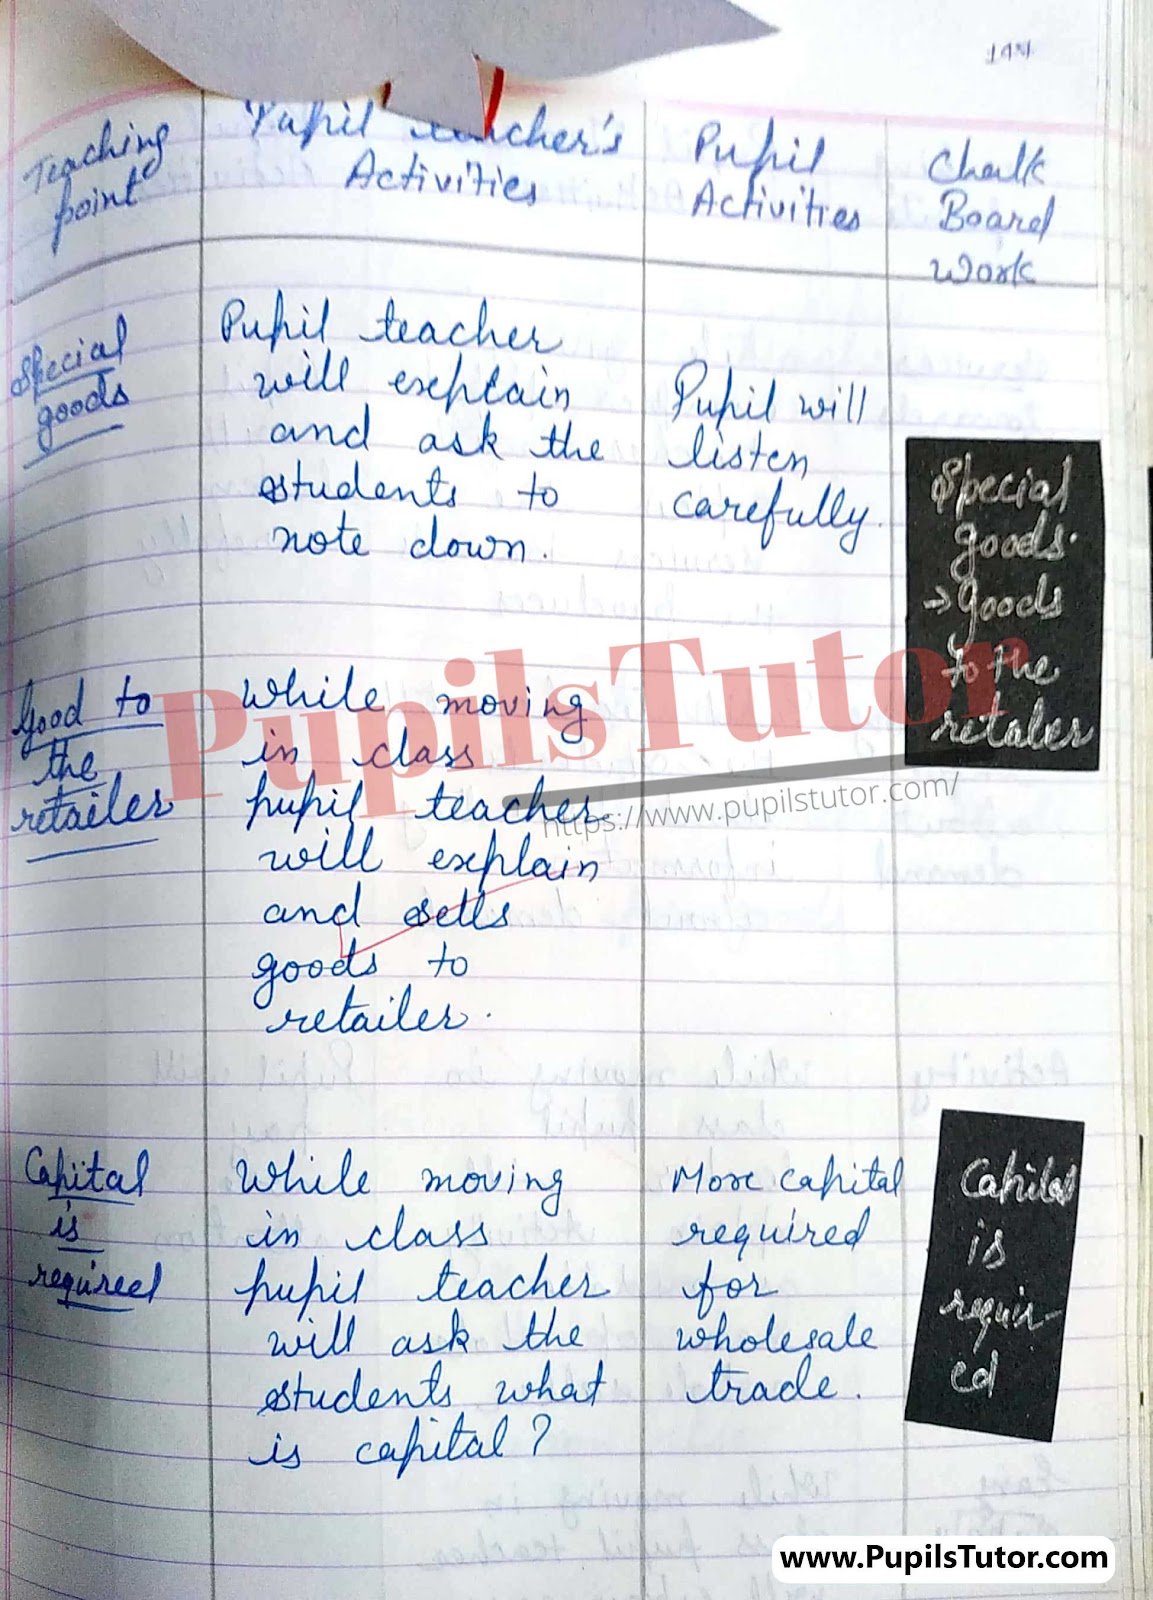 Teaching
point
Pupil teacher's
Activities
Pupil
Activities
Chalk
Board
Work
Special
goods
Pupil teacher
will explain
and ask the
students to
note down.
Pupil will
listen
carefully.
Special
goods.
→ goods
to the
retaler
Good to
the
retailer
While moving
in class
pupil teacher
will explain
and sells
goods to
retailer.
PupilsTutor
https://www.pupilstutor.com/
Capital
is
required
While moving
in class
pupil teacher
will ask the
students what
is capital?
More capital
required
for
wholesale
trade.
Capital
is
requir-
ed
www.PupilsTutor.com